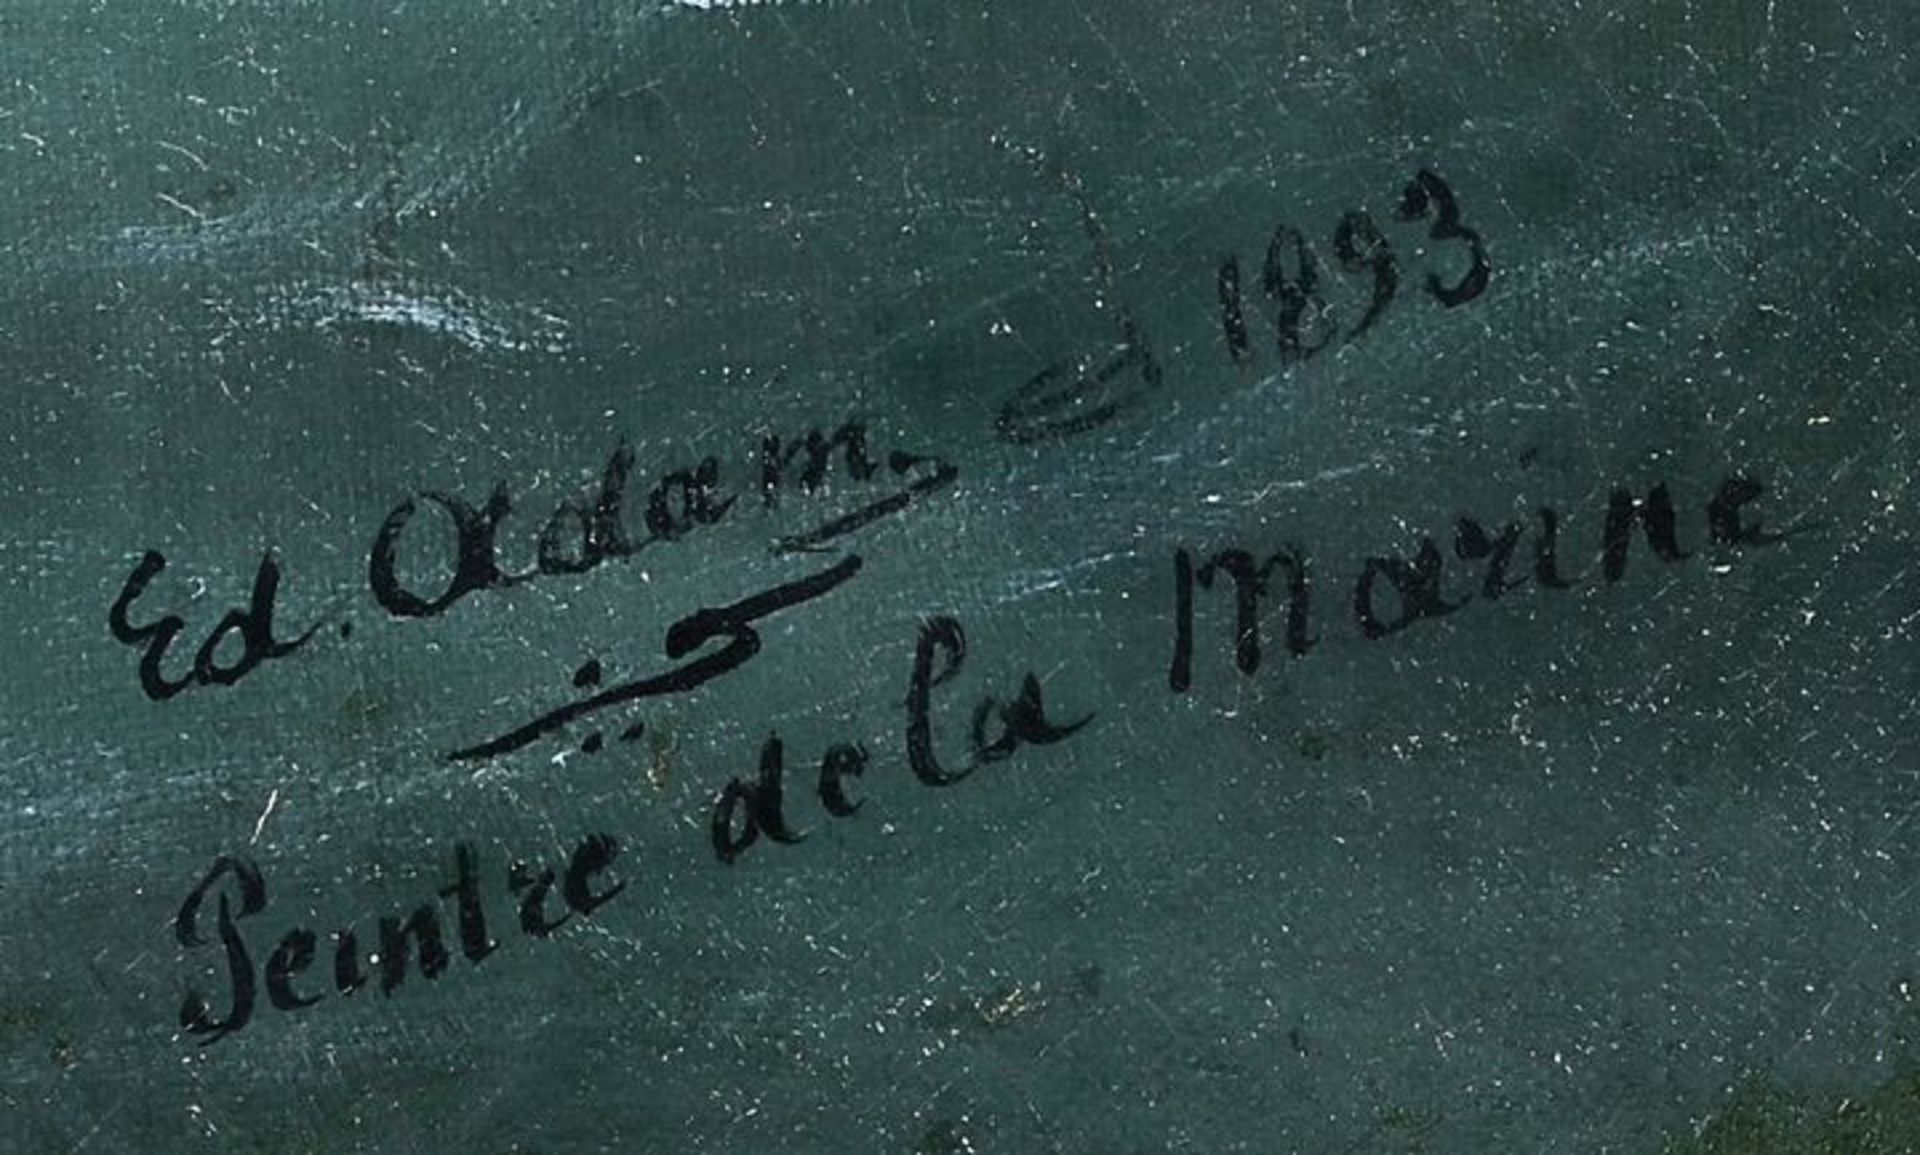 Ed. Adam 1893
Peintre de la Marine